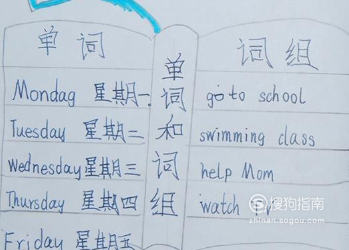 单词
Mondag 星期一
Tuesday 星期二
Wednesday 星期三
Thursday 星期四
Friday 星期五
单词和词组
词组
go to school
swimming class
help Mom
watch
搜狗指南
zhinan.sogou.com